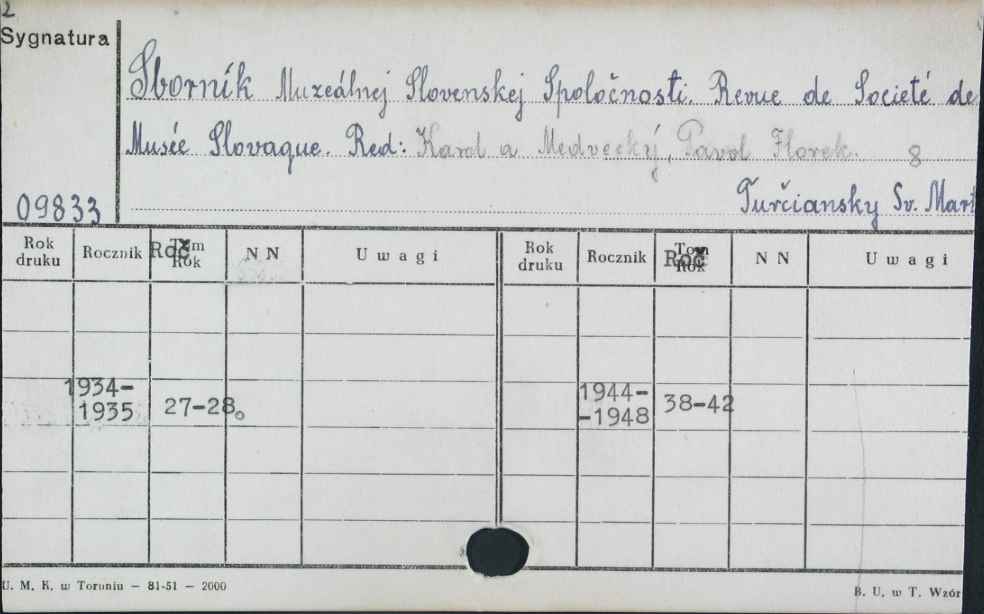 2
Sygnatura
Sborník Muzeálnej Slovenskej Spoločnosti. Revue de Societé de
Musée Slovaque. Red: Karol a Medvecký, Pavol Florek. 8
09833
Turčiansky Sv. Mart
Rok druku Rocznik Tom Rok Roč N N Uwagi Rok druku Rocznik Tom Rok Roč N N Uwagi
1934-
1935 27-28.
1944-
-1948 38-42
U. M. K. w Toruniu — 81-51 — 2000
B. U. w T. Wzór